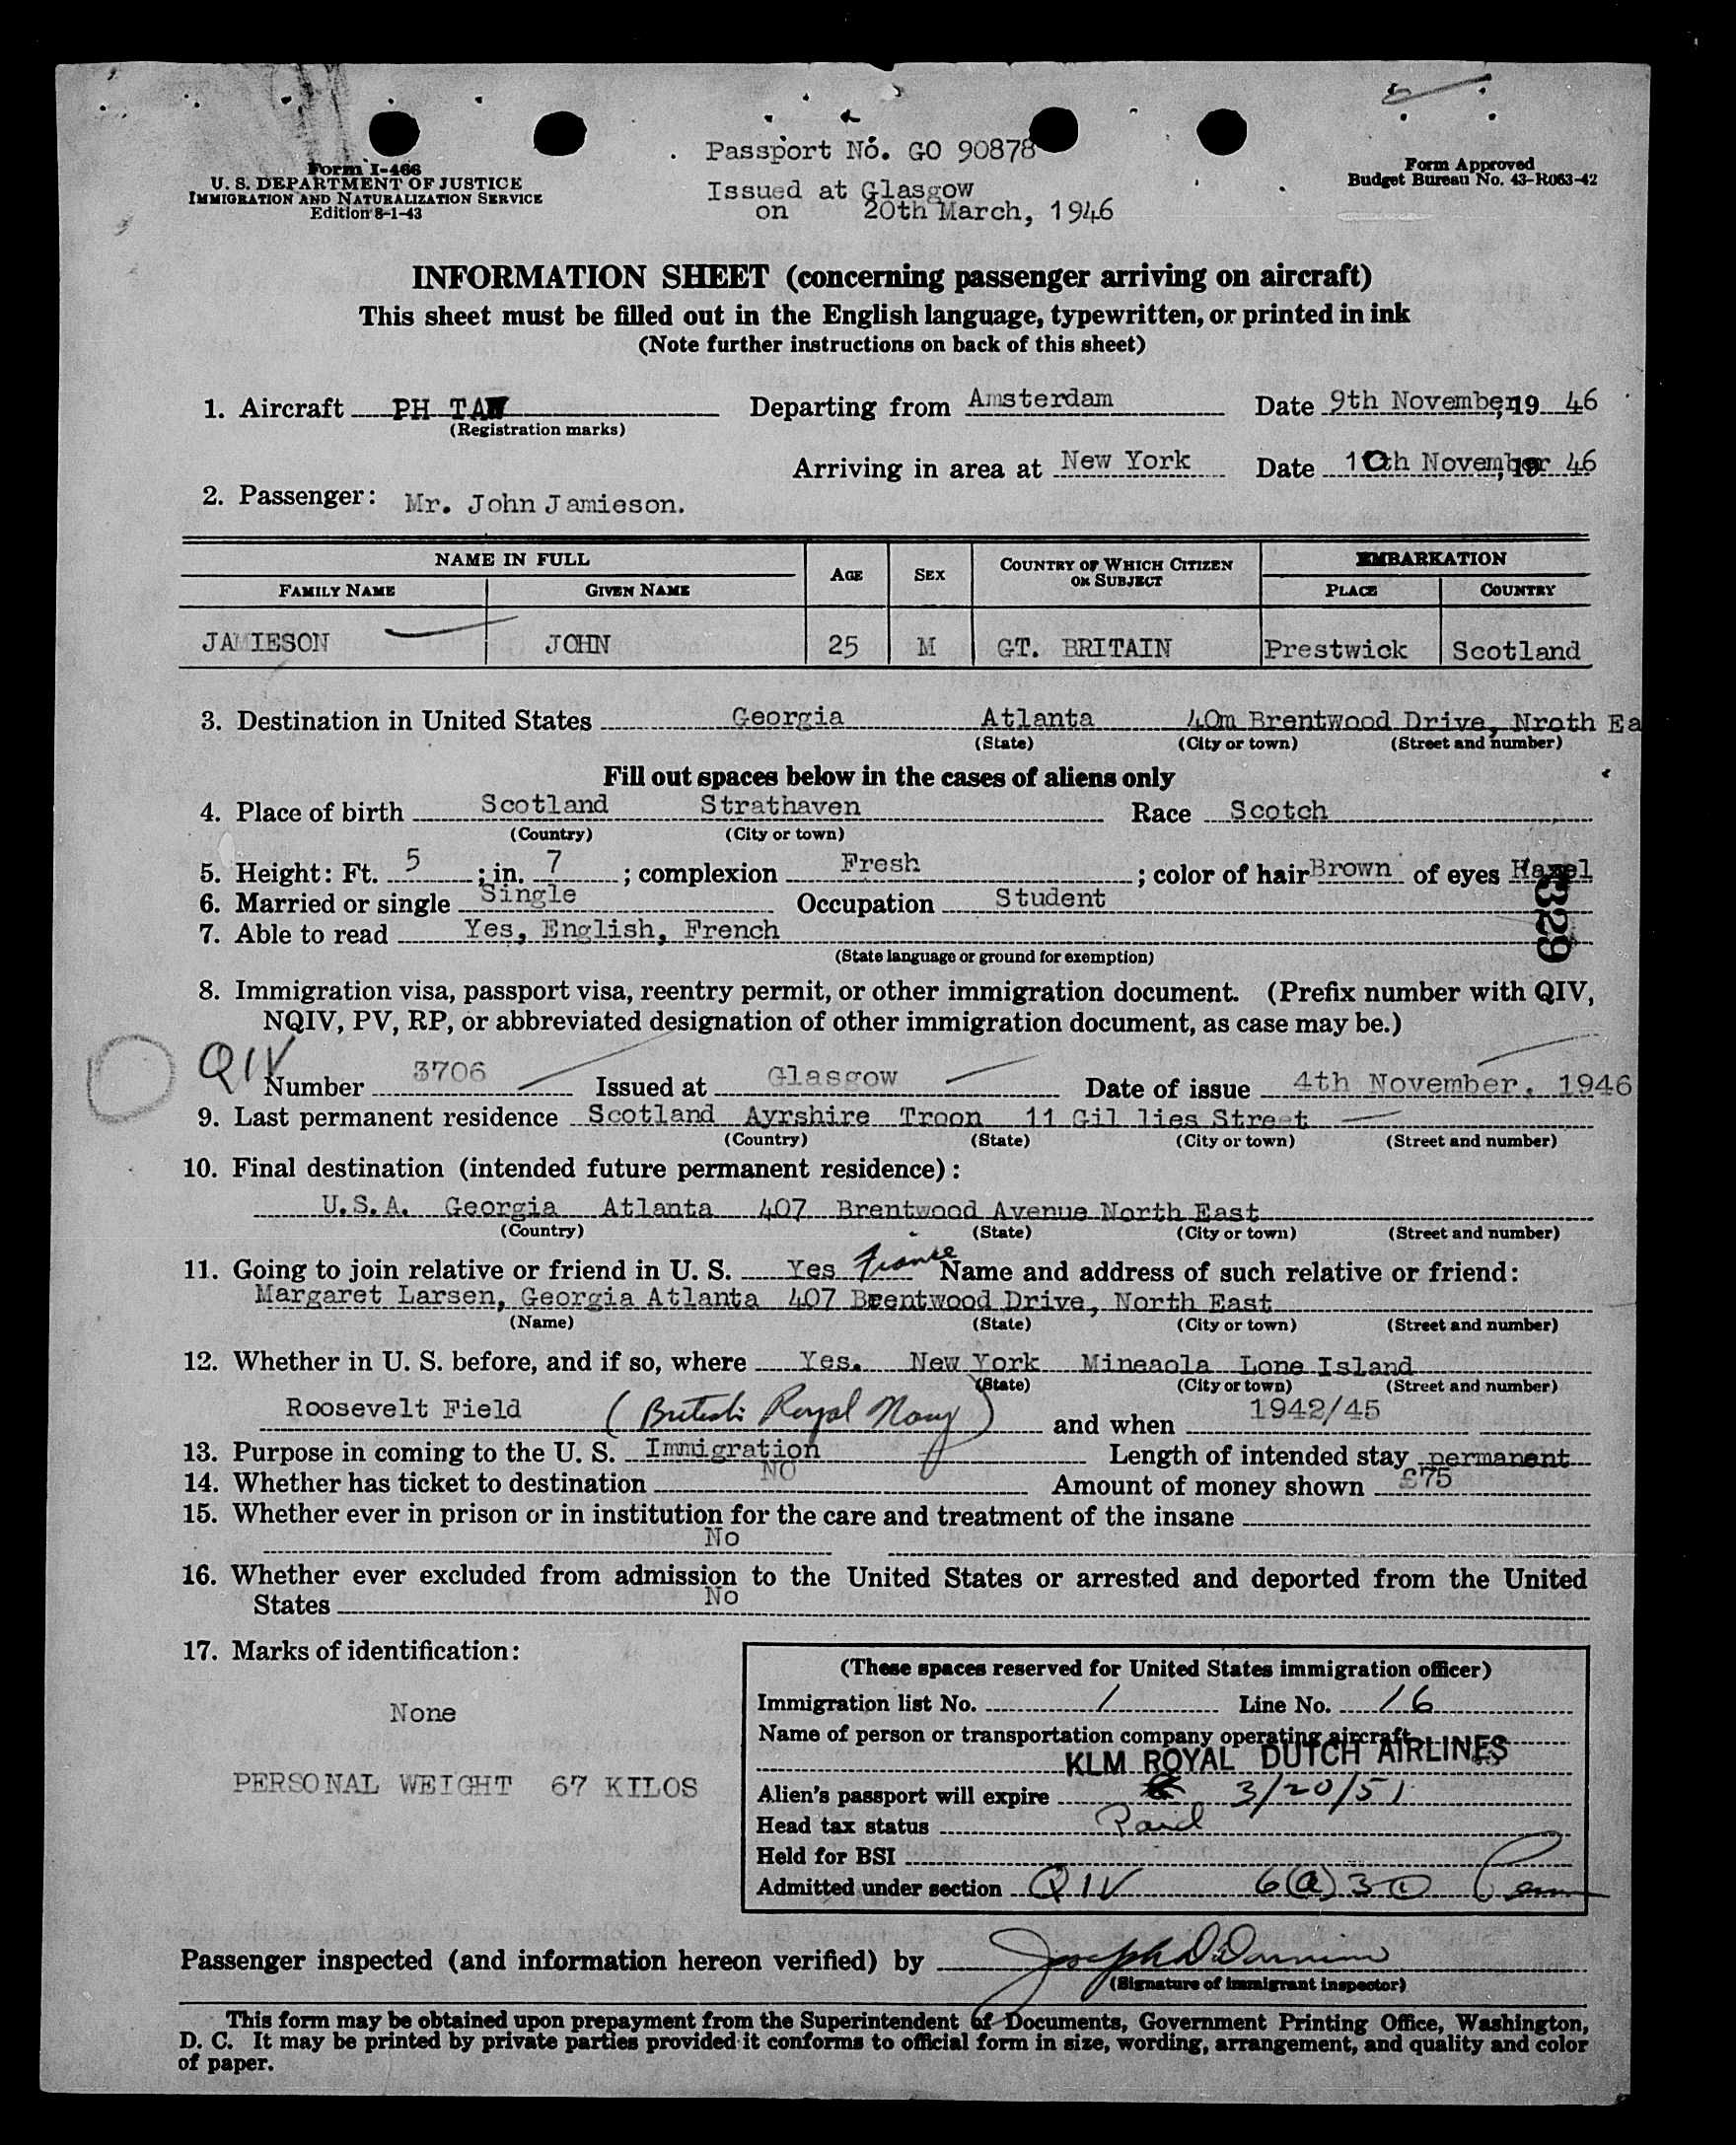 Form I-466
U. S. DEPARTMENT OF JUSTICE
IMMIGRATION AND NATURALIZATION SERVICE
Edition 8-1-43
Passport No. GO 90878
Issued at Glasgow
on 20th March, 1946
Form Approved
Budget Bureau No. 43-R063-42
INFORMATION SHEET (concerning passenger arriving on aircraft)
This sheet must be filled out in the English language, typewritten, or printed in ink
(Note further instructions on back of this sheet)
1. Aircraft PH TAW Departing from Amsterdam Date 9th November, 19 46
(Registration marks)
Arriving in area at New York Date 10th November, 19 46
2. Passenger: Mr. John Jamieson.
NAME IN FULL AGE SEX COUNTRY OF WHICH CITIZEN OR SUBJECT EMBARKATION
FAMILY NAME GIVEN NAME PLACE COUNTRY
JAMIESON JOHN 25 M GT. BRITAIN Prestwick Scotland
3. Destination in United States Georgia Atlanta 40m Brentwood Drive, Nroth Ea
(State) (City or town) (Street and number)
Fill out spaces below in the cases of aliens only
4. Place of birth Scotland Strathaven Race Scotch
(Country) (City or town)
5. Height: Ft. 5 ; in. 7 ; complexion Fresh ; color of hair Brown of eyes Hazel
6. Married or single Single Occupation Student
7. Able to read Yes, English, French
(State language or ground for exemption)
329
8. Immigration visa, passport visa, reentry permit, or other immigration document. (Prefix number with QIV,
NQIV, PV, RP, or abbreviated designation of other immigration document, as case may be.)
QIV
Number 3706 Issued at Glasgow Date of issue 4th November, 1946
9. Last permanent residence Scotland Ayrshire Troon 11 Gil lies Street
(Country) (State) (City or town) (Street and number)
10. Final destination (intended future permanent residence):
U.S.A. Georgia Atlanta 407 Brentwood Avenue North East
(Country) (State) (City or town) (Street and number)
11. Going to join relative or friend in U. S. Yes Fiance Name and address of such relative or friend:
Margaret Larsen, Georgia Atlanta 407 Brentwood Drive, North East
(Name) (State) (City or town) (Street and number)
12. Whether in U. S. before, and if so, where Yes. New York Mineaola Lone Island
(State) (City or town) (Street and number)
Roosevelt Field (British Royal Navy) and when 1942/45
13. Purpose in coming to the U. S. Immigration Length of intended stay permanent
14. Whether has ticket to destination NO Amount of money shown £75
15. Whether ever in prison or in institution for the care and treatment of the insane
No
16. Whether ever excluded from admission to the United States or arrested and deported from the United
States No
17. Marks of identification:
None
PERSONAL WEIGHT 67 KILOS
(These spaces reserved for United States immigration officer)
Immigration list No. 1 Line No. 16
Name of person or transportation company operating aircraft
KLM ROYAL DUTCH AIRLINES
Alien's passport will expire 3/20/51
Head tax status Paid
Held for BSI
Admitted under section QIV 6(a)3 (1)
Passenger inspected (and information hereon verified) by Joseph
(Signature of immigrant inspector)
This form may be obtained upon prepayment from the Superintendent of Documents, Government Printing Office, Washington,
D. C. It may be printed by private parties provided it conforms to official form in size, wording, arrangement, and quality and color
of paper.